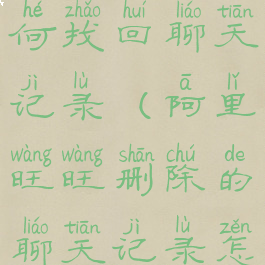 hé zhǎo huí liáo tiān
何找回聊天
jì lù ā lǐ
记录（阿里
wàng wàng shān chú de
旺旺删除的
liáo tiān jì lù zěn
聊天记录怎